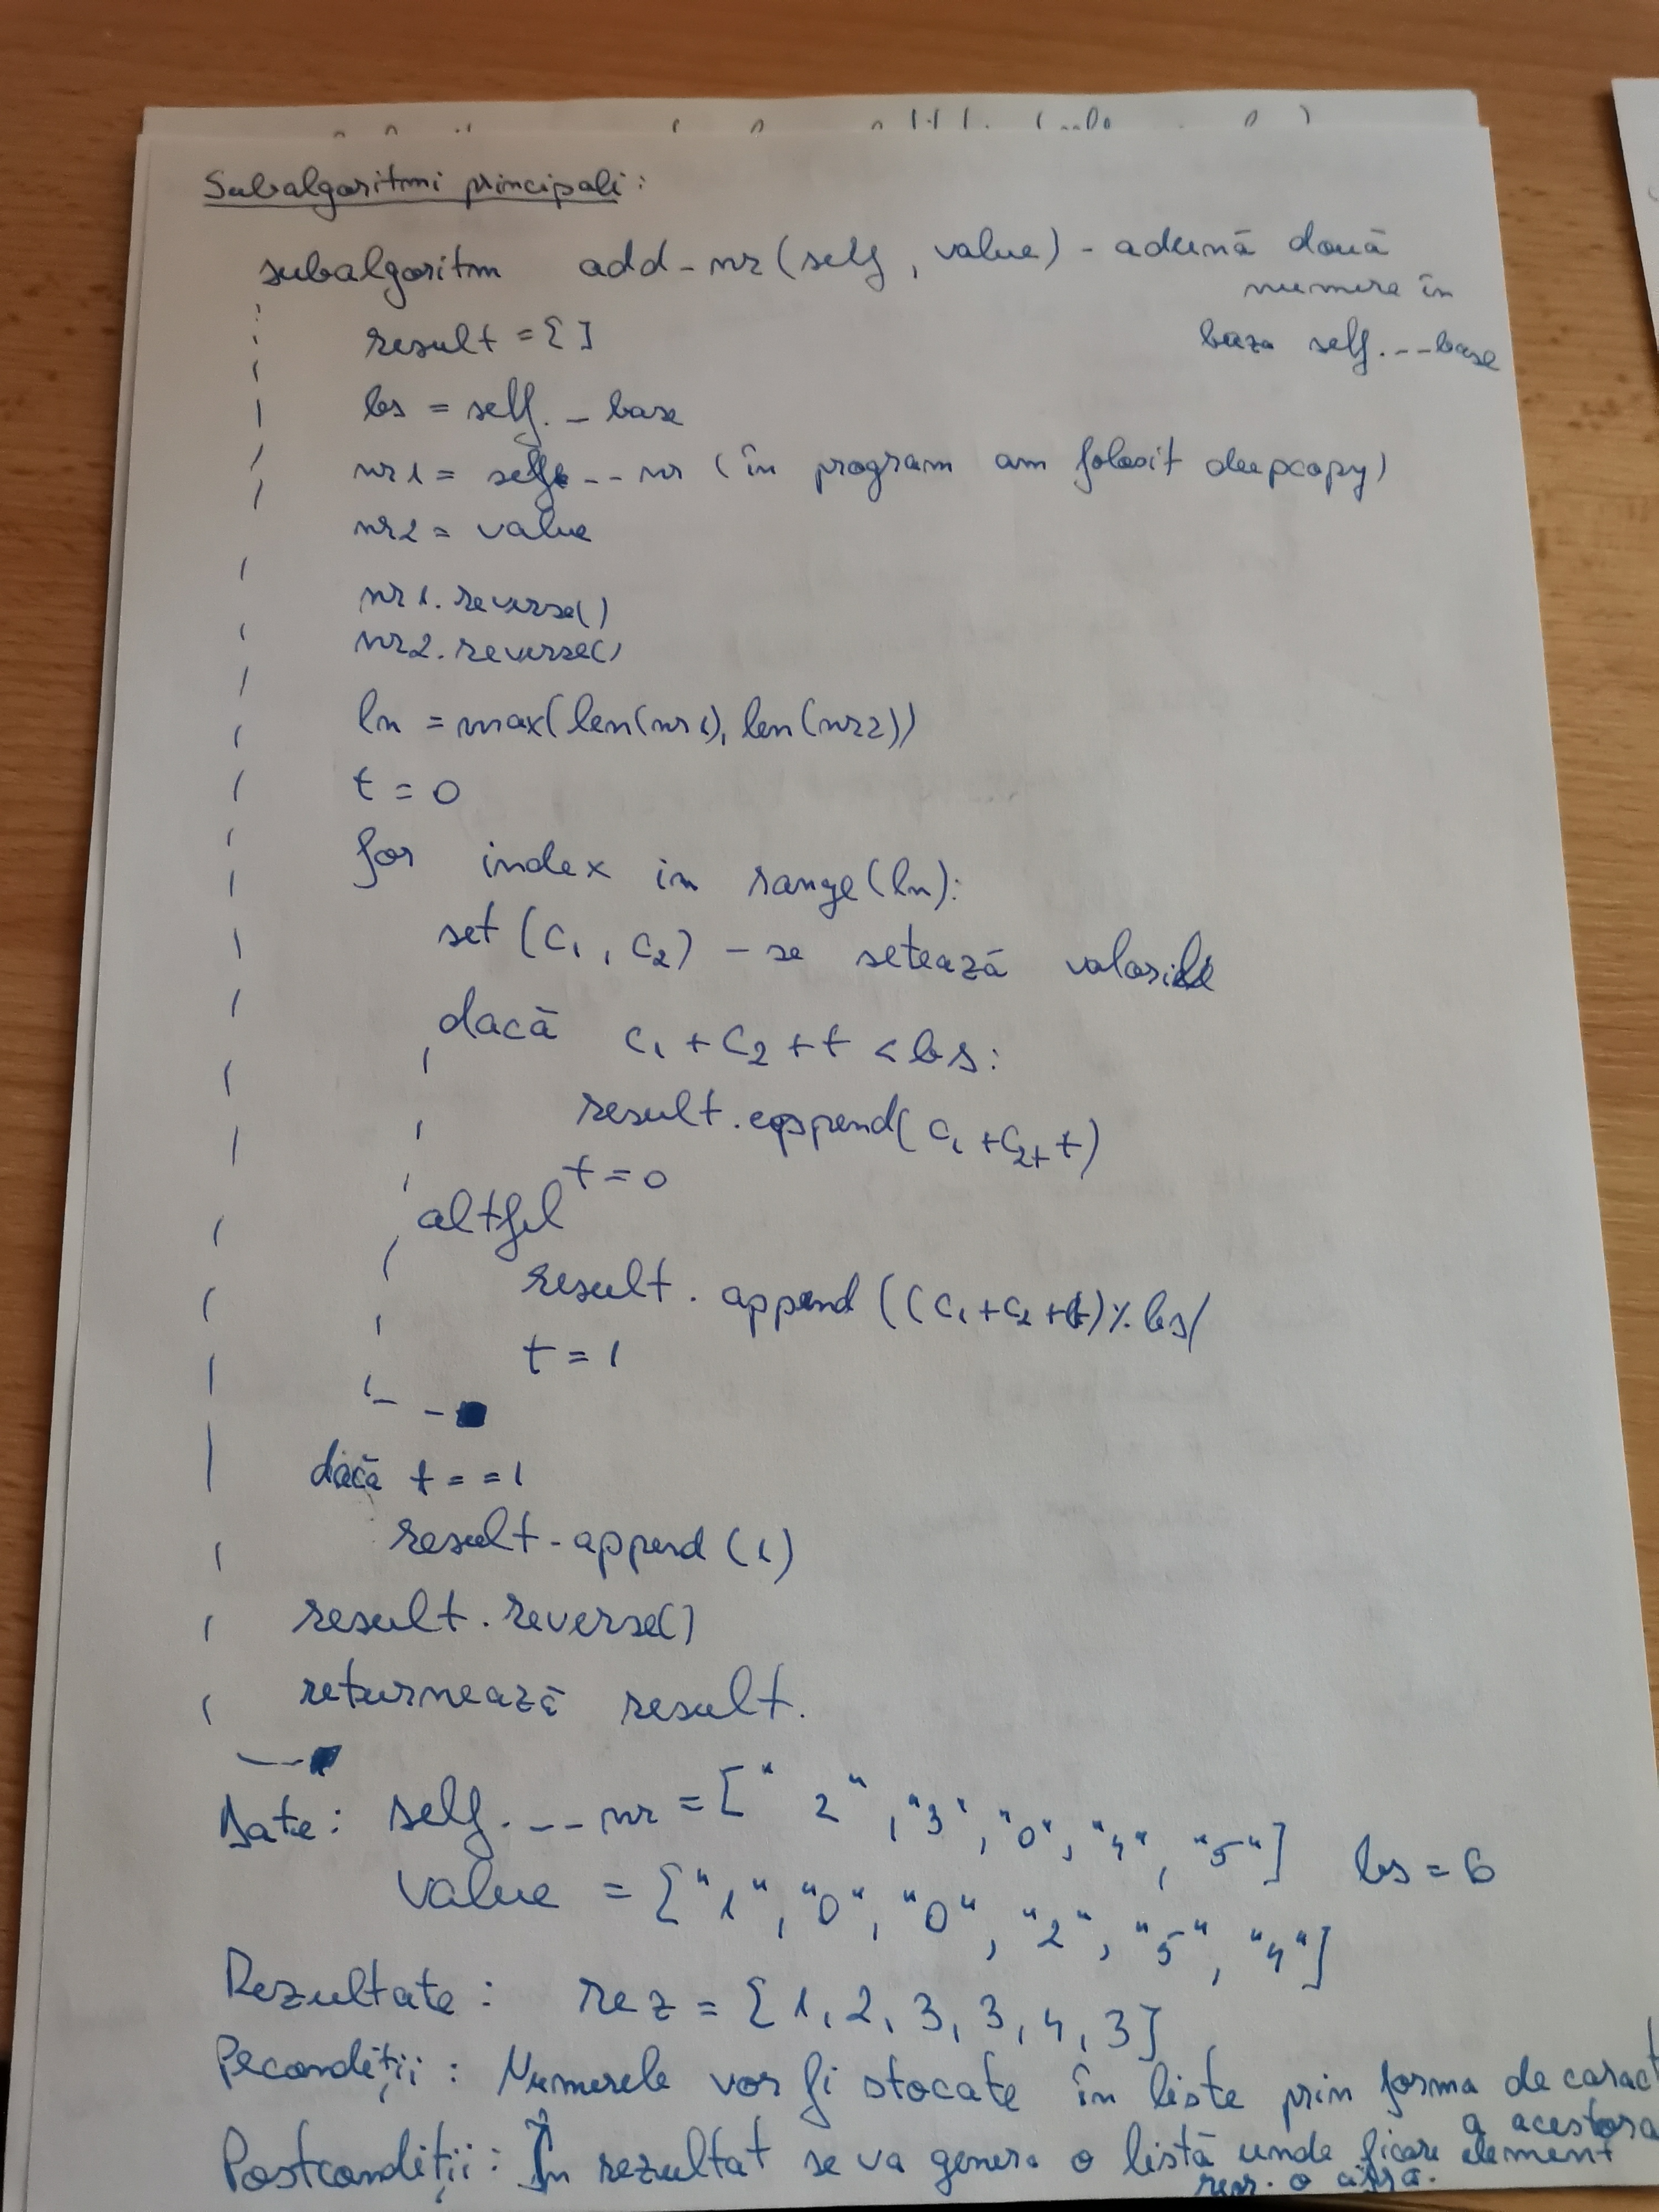 Subalgoritmi principali:
subalgoritm add-nr (self, value) - adună două
numere în
baza self.__base
result = []
bs = self._base
nr1 = self.__nr (în program am folosit deepcopy)
nr2 = value
nr1.reverse()
nr2.reverse()
ln = max(len(nr1), len(nr2))
t = 0
for index in range(ln):
set (c1, c2) - se setează valorile
dacă c1 + c2 + t < bs:
result.append(c1 + c2 + t)
t = 0
altfel
result.append((c1 + c2 + t) % bs)
t = 1
dacă t == 1
result.append(1)
result.reverse()
returnează result.
Date: self.__nr = ["2", "3", "0", "4", "5"] bs = 6
value = ["1", "0", "0", "2", "5", "4"]
Rezultate: rez = [1, 2, 3, 3, 4, 3]
Pecondiții: Numerele vor fi stocate în liste prin forma de caract
a acestora
Postcondiții: În rezultat se va genera o listă unde ficare element
repr. o cifră.